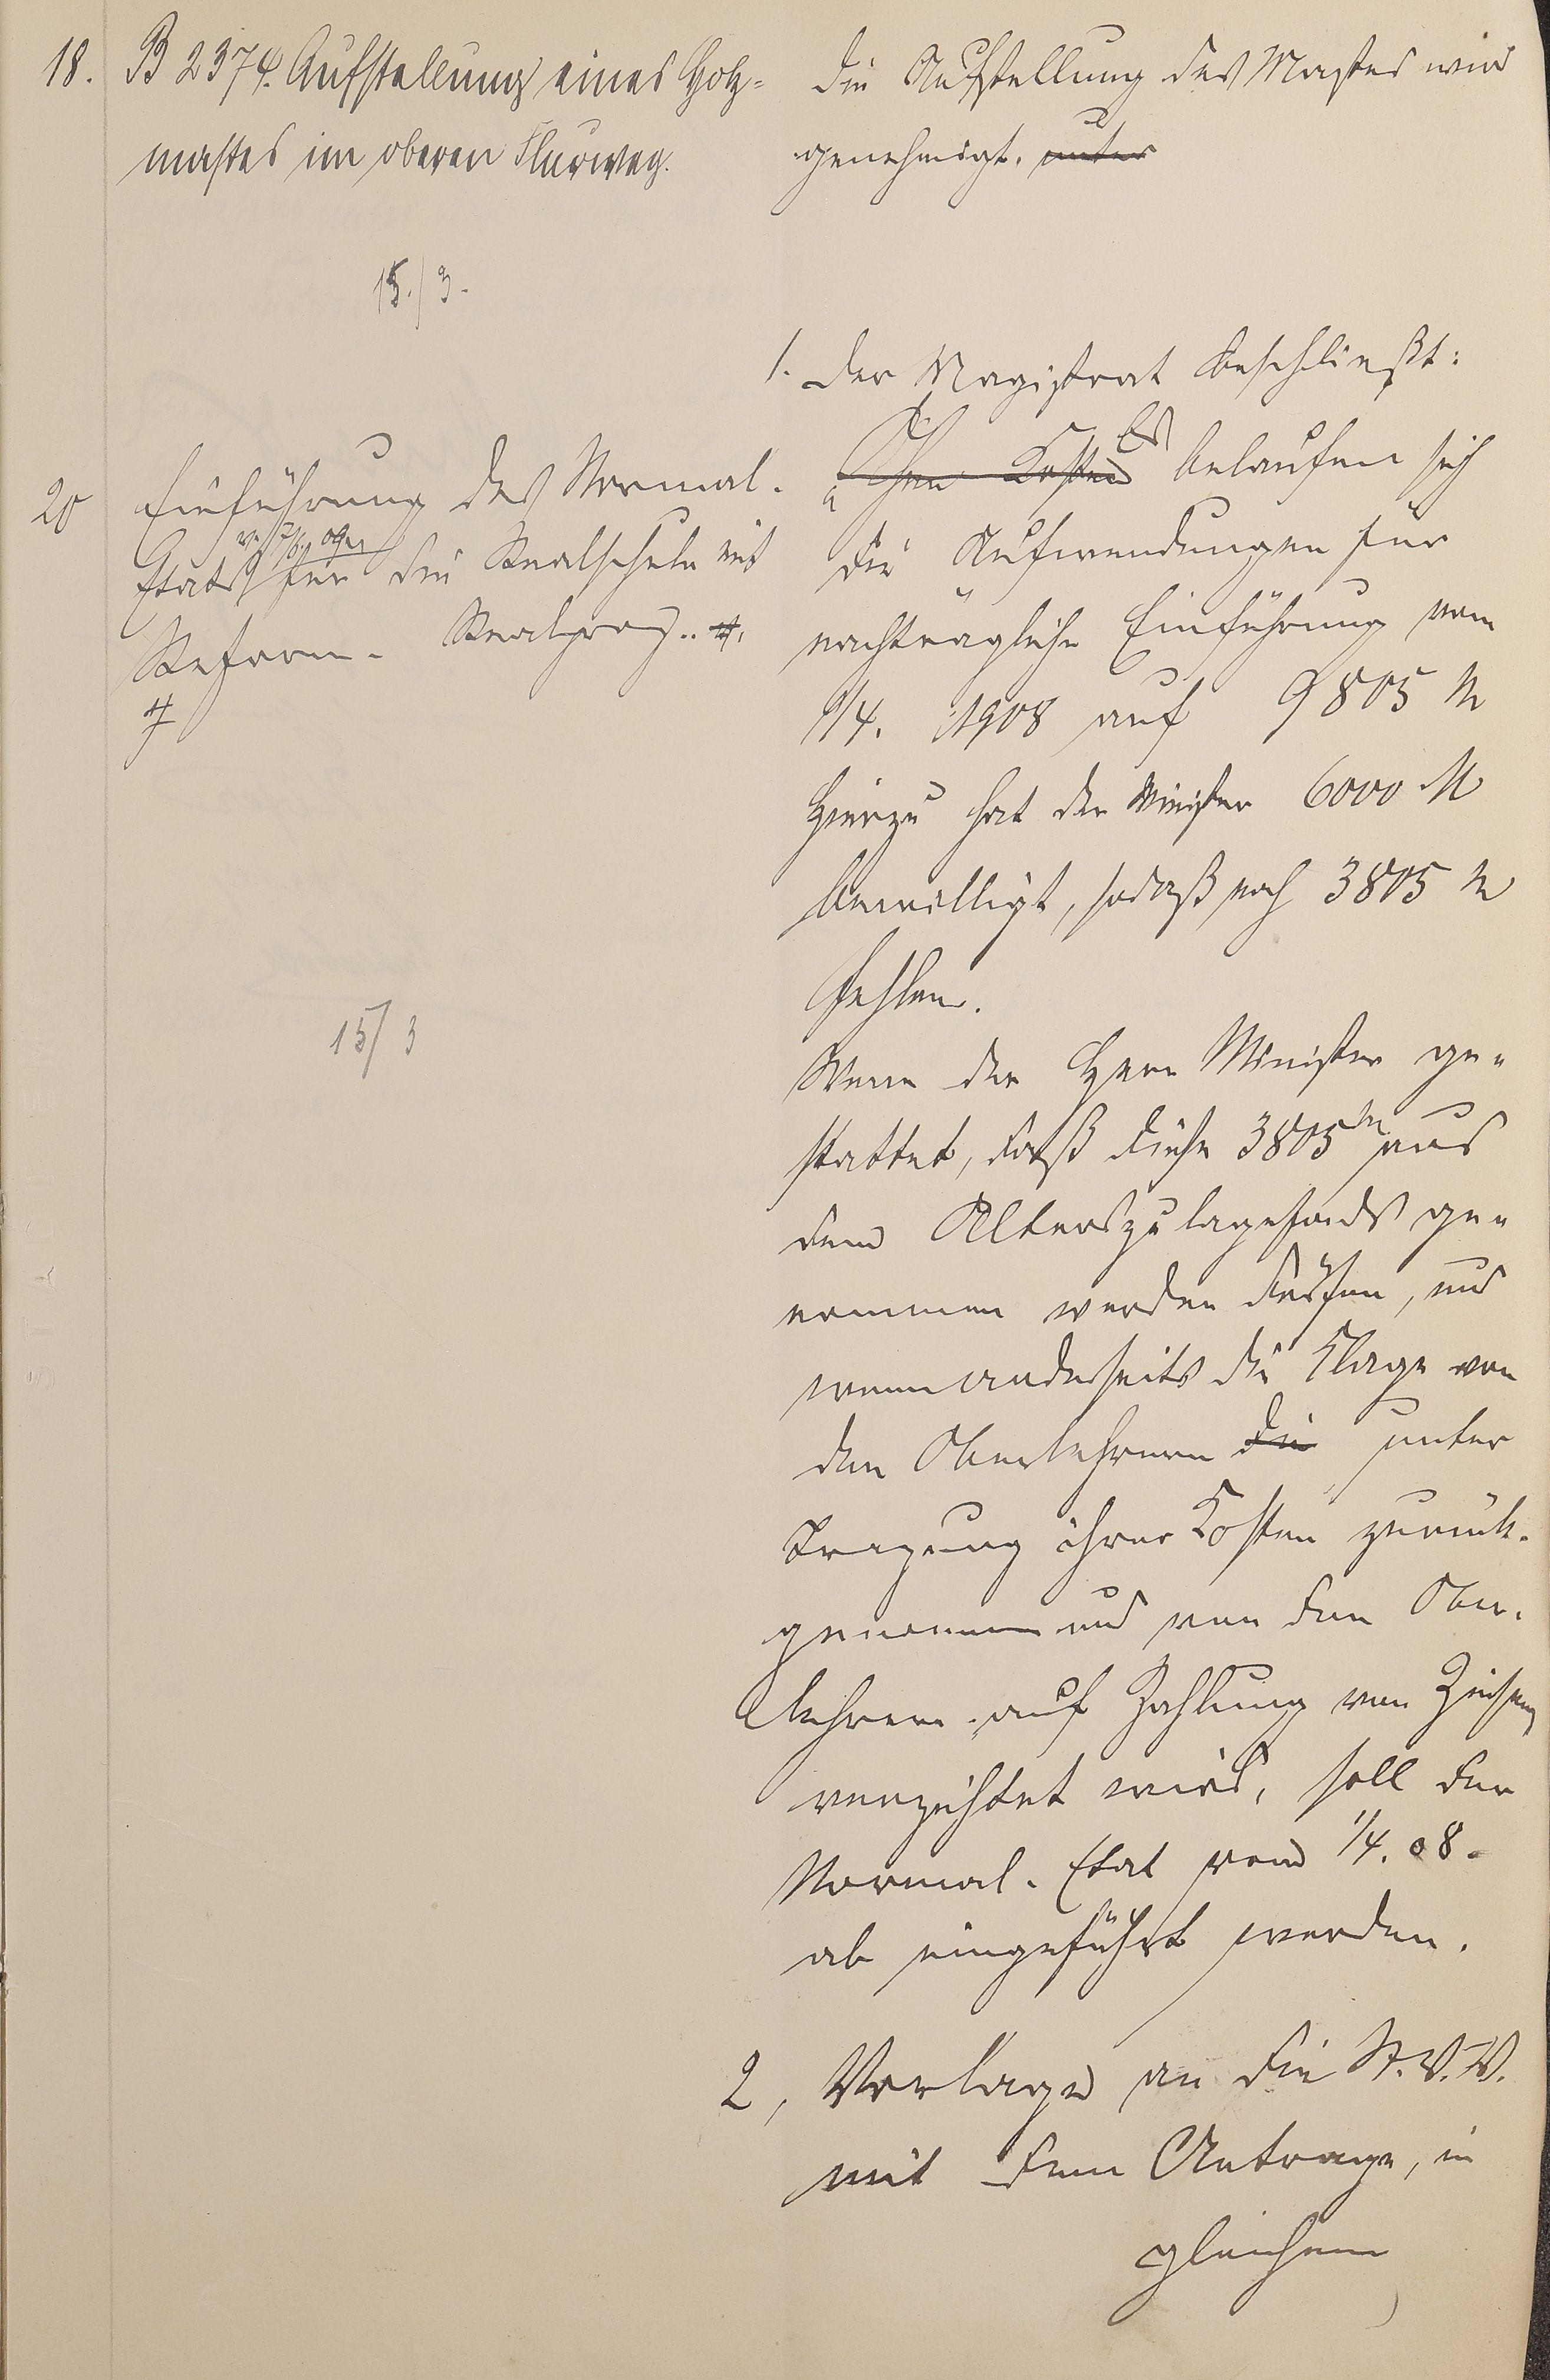 18. B 2374. Aufstellung eines Holz-
mastes im oberen Flurweg.
Die Aufstellung des Mastes wird
genehmigt. unter
15./3.
1. Der Magistrat beschließt:
20 Einführung des Normal-
Etats für die Realschule mit
Reform- Realprog.
Kosten Es belaufen sich
die Aufwendungen für
nachträgliche Einführung vom
1/4. 1908 auf 9805 M
Hierzu hat der Minister 6000 M
bewilligt, sodaß noch 3805 M
fehlen.
15/3
Wenn der Herr Minister ge-
stattet, daß diese 3805 M aus
dem Alterszulagefonds ge-
nommen werden dürfen, und
wenn anderseits die Klage von
den Oberlehrern die unter
Tragung ihrer Kosten zurück-
genommen und von den Ober-
lehrern auf Zahlung von Zinsen
verzichtet wird, soll der
Normal-Etat vom 1/4. 08.
ab eingeführt werden.
2, Vorlage an die St.V.V.
mit dem Antrage, in
gleichem